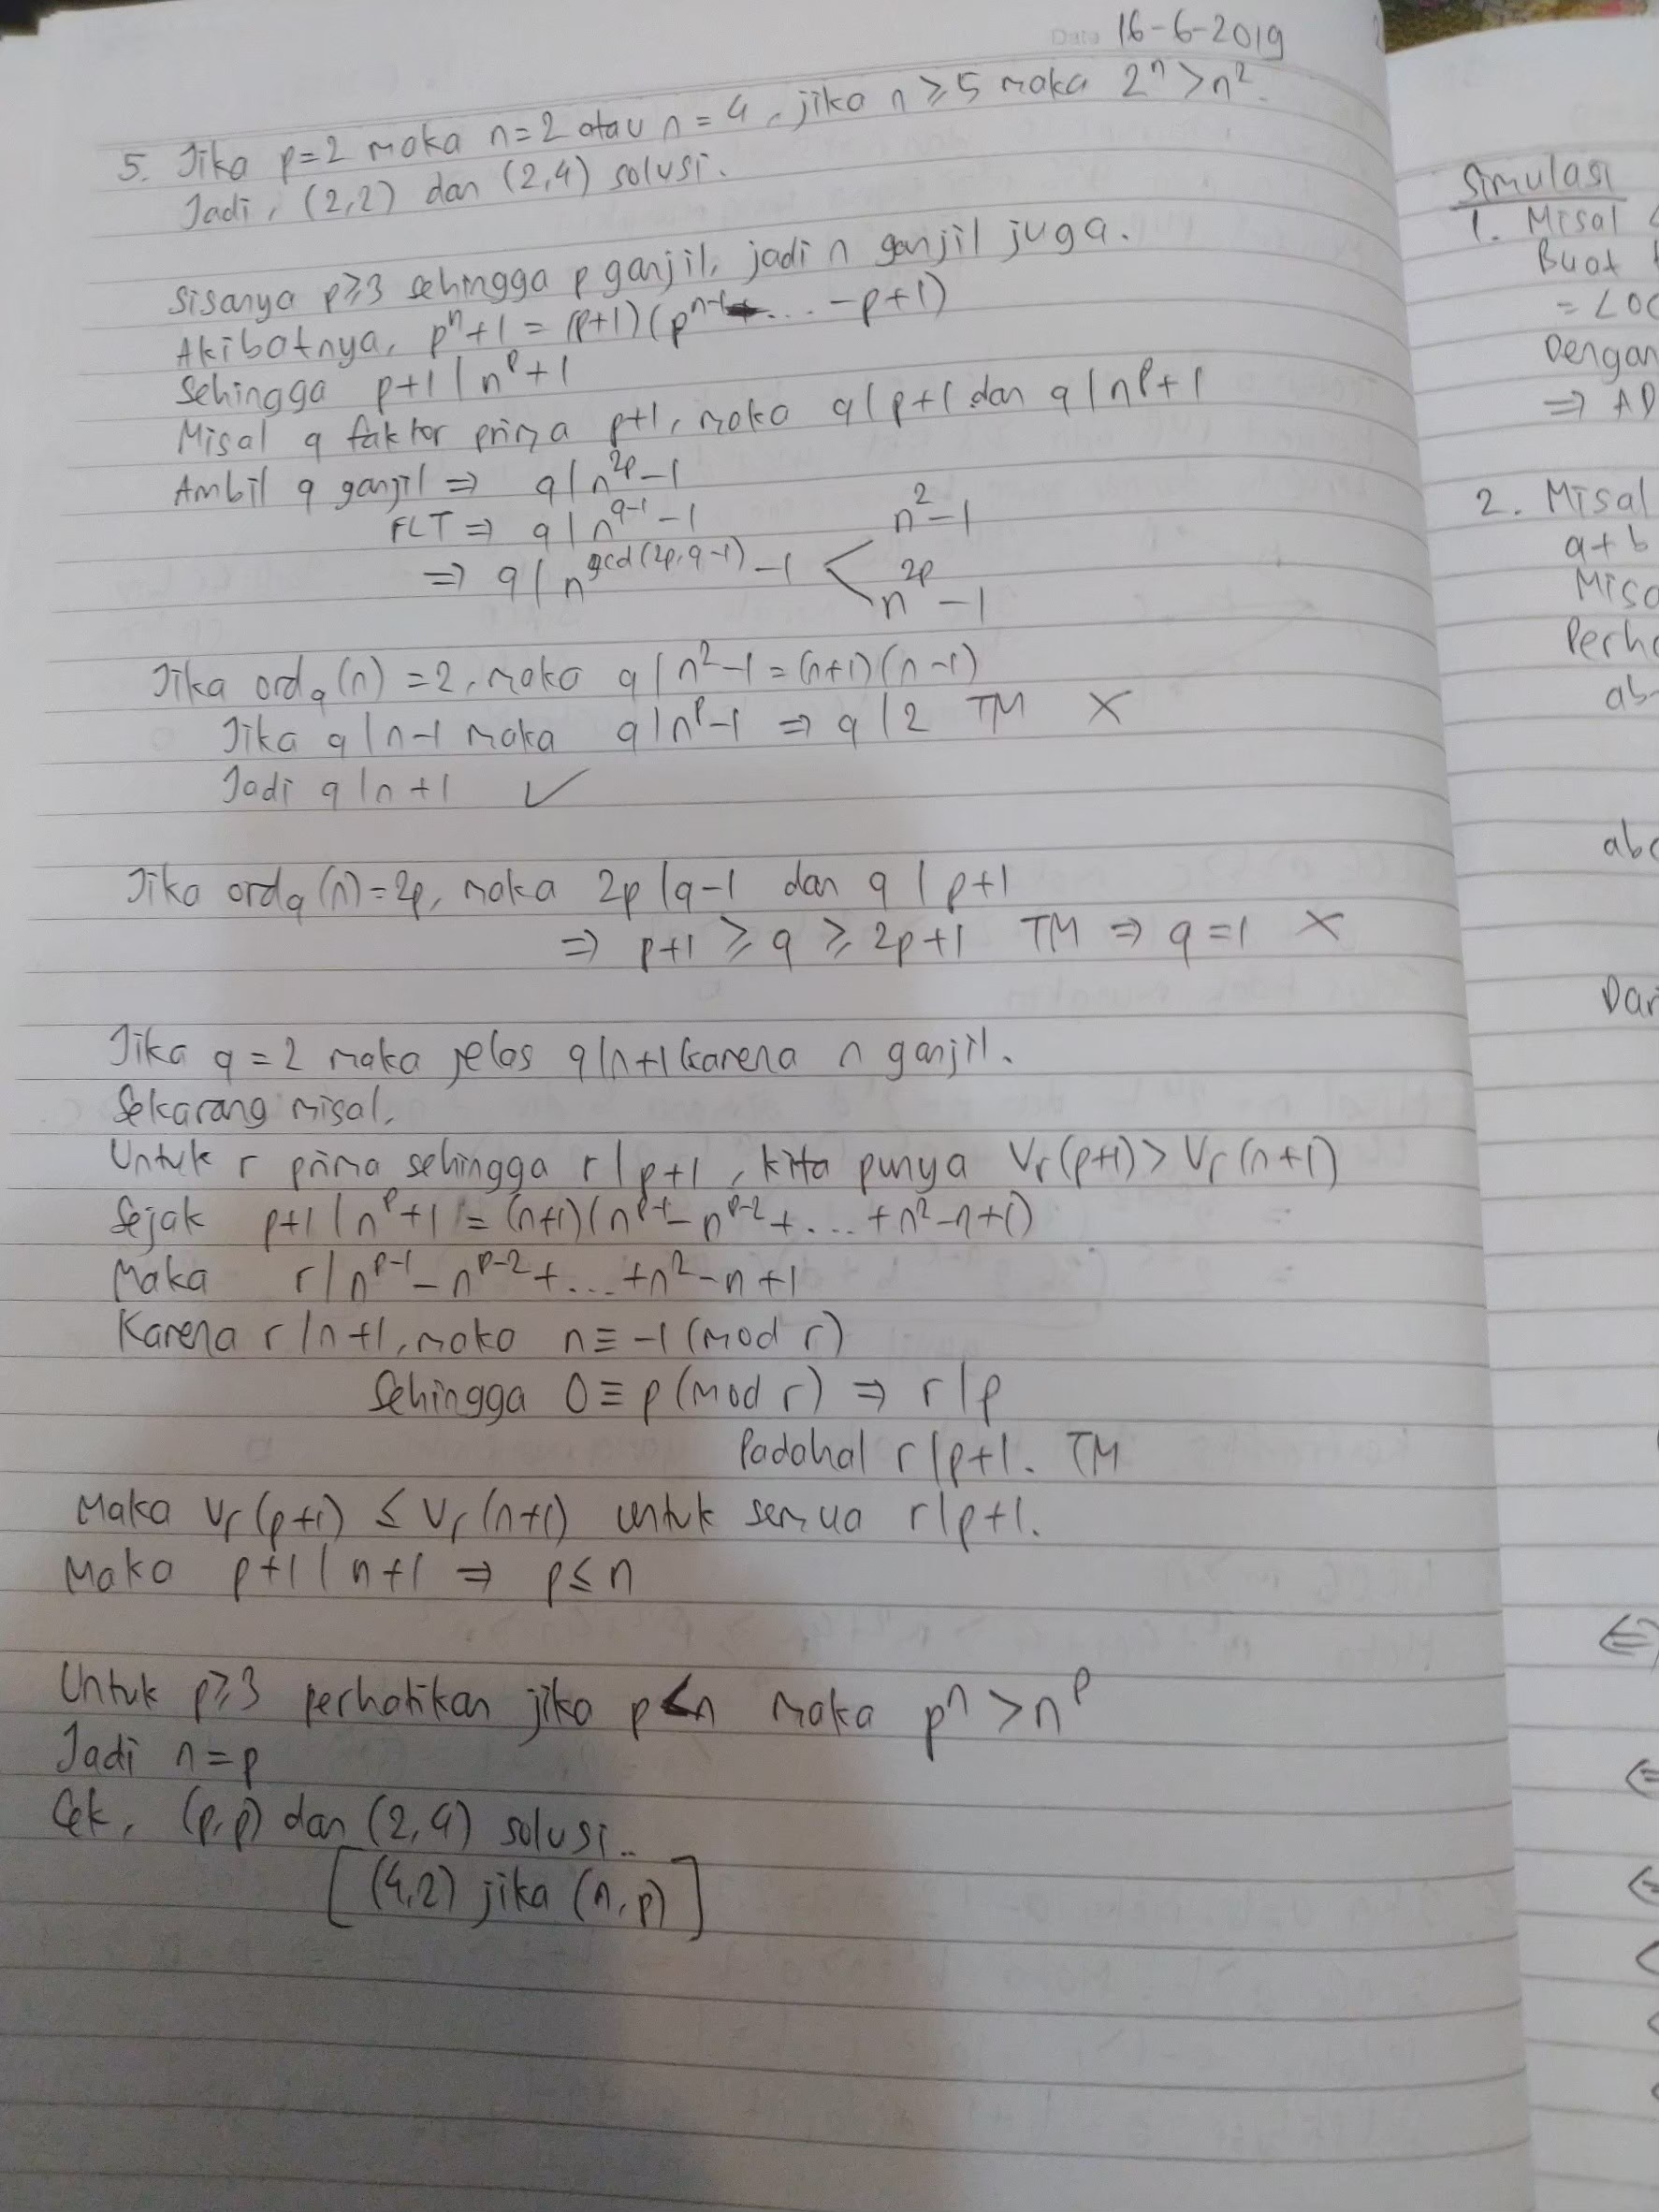 Date 16-6-2019
5. Jika p=2 maka n=2 atau n=4, jika n≥5 maka 2^n > n^2.
Jadi, (2,2) dan (2,4) solusi.
Sisanya p≥3 sehingga p ganjil, jadi n ganjil juga.
Akibatnya, p^n+1 = (p+1)(p^{n-1} ... -p+1)
Sehingga p+1 | n^p+1
Misal q faktor prima p+1, maka q|p+1 dan q|n^p+1
Ambil q ganjil ⇒ q | n^{2p}-1
FLT ⇒ q | n^{q-1}-1
⇒ q | n^{gcd(2p,q-1)}-1 < n^2-1
n^{2p}-1
Jika ord_q(n) = 2, maka q | n^2-1 = (n+1)(n-1)
Jika q|n-1 maka q|n^p-1 ⇒ q|2 TM ×
Jadi q|n+1 ✓
Jika ord_q(n)=2p, maka 2p|q-1 dan q | p+1
⇒ p+1 ≥ q ≥ 2p+1 TM ⇒ q=1 ×
Jika q=2 maka jelas q|n+1 karena n ganjil.
Sekarang misal,
Untuk r prima sehingga r|p+1, kita punya V_r(p+1) > V_r(n+1)
Sejak p+1 | n^p+1 = (n+1)(n^{p-1}-n^{p-2}+...+n^2-n+1)
Maka r | n^{p-1}-n^{p-2}+...+n^2-n+1
Karena r|n+1, maka n≡-1 (mod r)
Sehingga 0≡p (mod r) ⇒ r|p
Padahal r|p+1. TM
Maka V_r(p+1) ≤ V_r(n+1) untuk semua r|p+1.
Maka p+1 | n+1 ⇒ p≤n
Untuk p≥3 perhatikan jika p<n maka p^n > n^p
Jadi n=p
Cek, (p,p) dan (2,4) solusi..
[(4,2) jika (n,p)]
Simulasi
1. Misal
Buat
= ∠
Dengan
⇒
2. Misal
a+b
ab
⇐